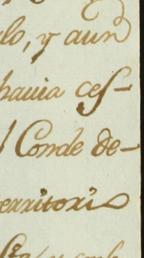 lo, y aun
havia ces-
l Conde de-
erritorio